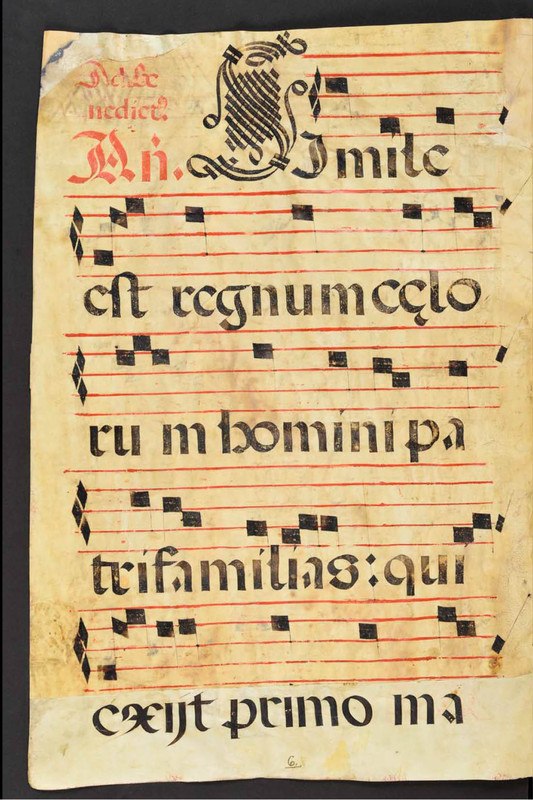 Ad Be
nedict?
An. SImile
est regnum cęlo
ru m homini pa
trifamilias: qui
exijt primo ma
6.